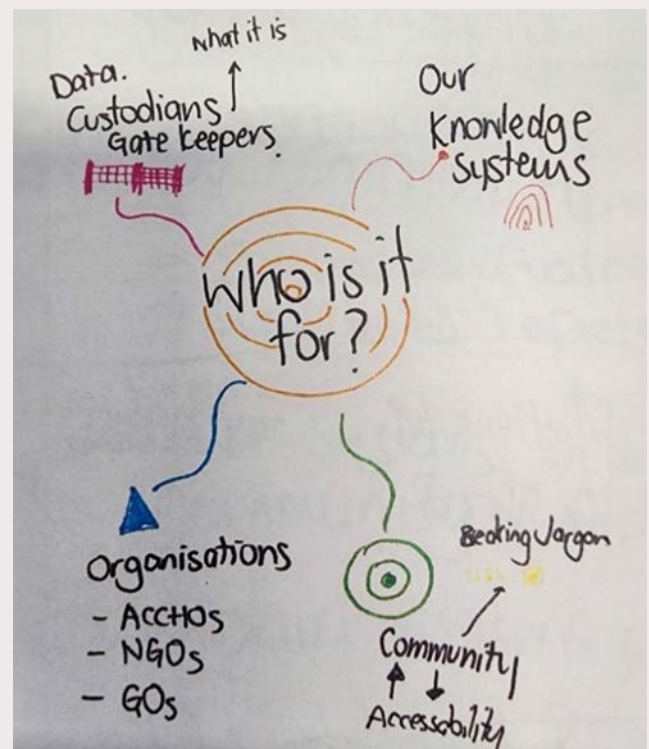 what it is
Data.
Custodians
Gate keepers.
Our
Knowledge
Systems
who is it
for?
Organisations
- ACCHOs
- NGOs
- GOs
Beating Jargon
Community
Accessability